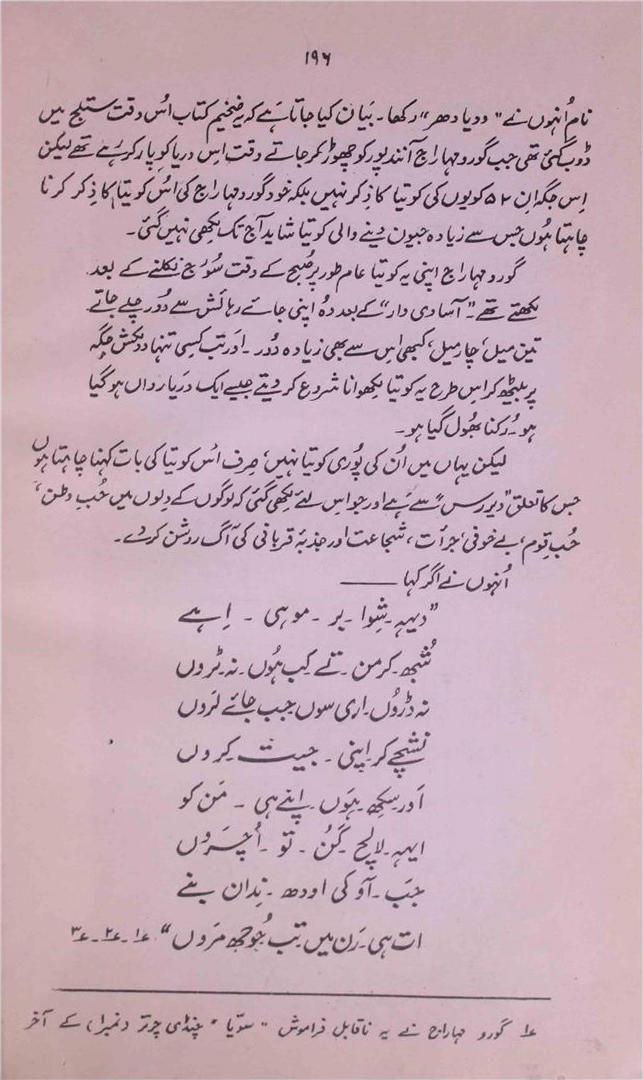 ۱۹۶
نام اُنہوں نے "ودیا دھر" رکھا۔ بیان کیا جاتا ہے کہ یہ ضخیم کتاب اُس وقت ستلج میں
ڈوب گئی تھی جب گورو مہاراج آنند پور کو چھوڑ کر جاتے وقت اس دریا کو پار کر رہے تھے لیکن
اِس جگہ اِن ۵۲ کویوں کی کویتا کا ذکر نہیں بلکہ خود گورو مہاراج کی اُس کویتا کا ذکر کرنا
چاہتا ہُوں جس سے زیادہ جیون دینے والی کویتا شاید آج تک لکھی نہیں گئی۔
گورو مہاراج اپنی یہ کویتا عام طور پر صُبح کے وقت سُورج نکلنے کے بعد
لکھتے تھے "آسا دی وار" کے بعد وُہ اپنی جائے رہائش سے دُور چلے جاتے
تین میل، چار میل، کبھی اس سے بھی زیادہ دُور۔ اور تب کسی تنہا دلکش جگہ
پر بیٹھ کر اس طرح یہ کویتا لکھوانا شروع کر دیتے جیسے ایک دریا رواں ہو گیا
ہو۔ رُکنا بھُول گیا ہو۔
لیکن یہاں میں اُن کی پُوری کویتا نہیں، صِرف اُس کویتا کی بات کہنا چاہتا ہوں
جس کا تعلق "ویر رس" سے ہے اور جو اس لئے لکھی گئی کہ لوگوں کے دِلوں میں حُبِ وطن،
حُبِ قوم، بے خوفی، جرأت، شجاعت اور جذبۂ قربانی کی آگ روشن کر دے۔
اُنہوں نے اگر کہا ——
"دیہہ۔ شِوا۔ بر۔ موہی۔ اِہے
شُبھ۔ کرمن۔ تے کب ہُوں۔ نہ ٹروں
نہ ڈروں۔ اری سوں جب جائے لروں
نشچے کر اپنی۔ جیت کروں
اَور سِکھ ہوَں۔ اپنے ہی۔ مَن کو
ایہہ۔ لالچ۔ گُن۔ تَو۔ اُچروں
جَب۔ آو کی اودھ۔ نِدان بنے
ات ہی۔ رَن میں تب جُوجھ مروں" ؏۱۔ ؏۲۔ ؏۳
؏۱ گورو مہاراج نے یہ ناقابل فراموش "سویّا" چنڈی چرتر (نمبر۱) کے آخر